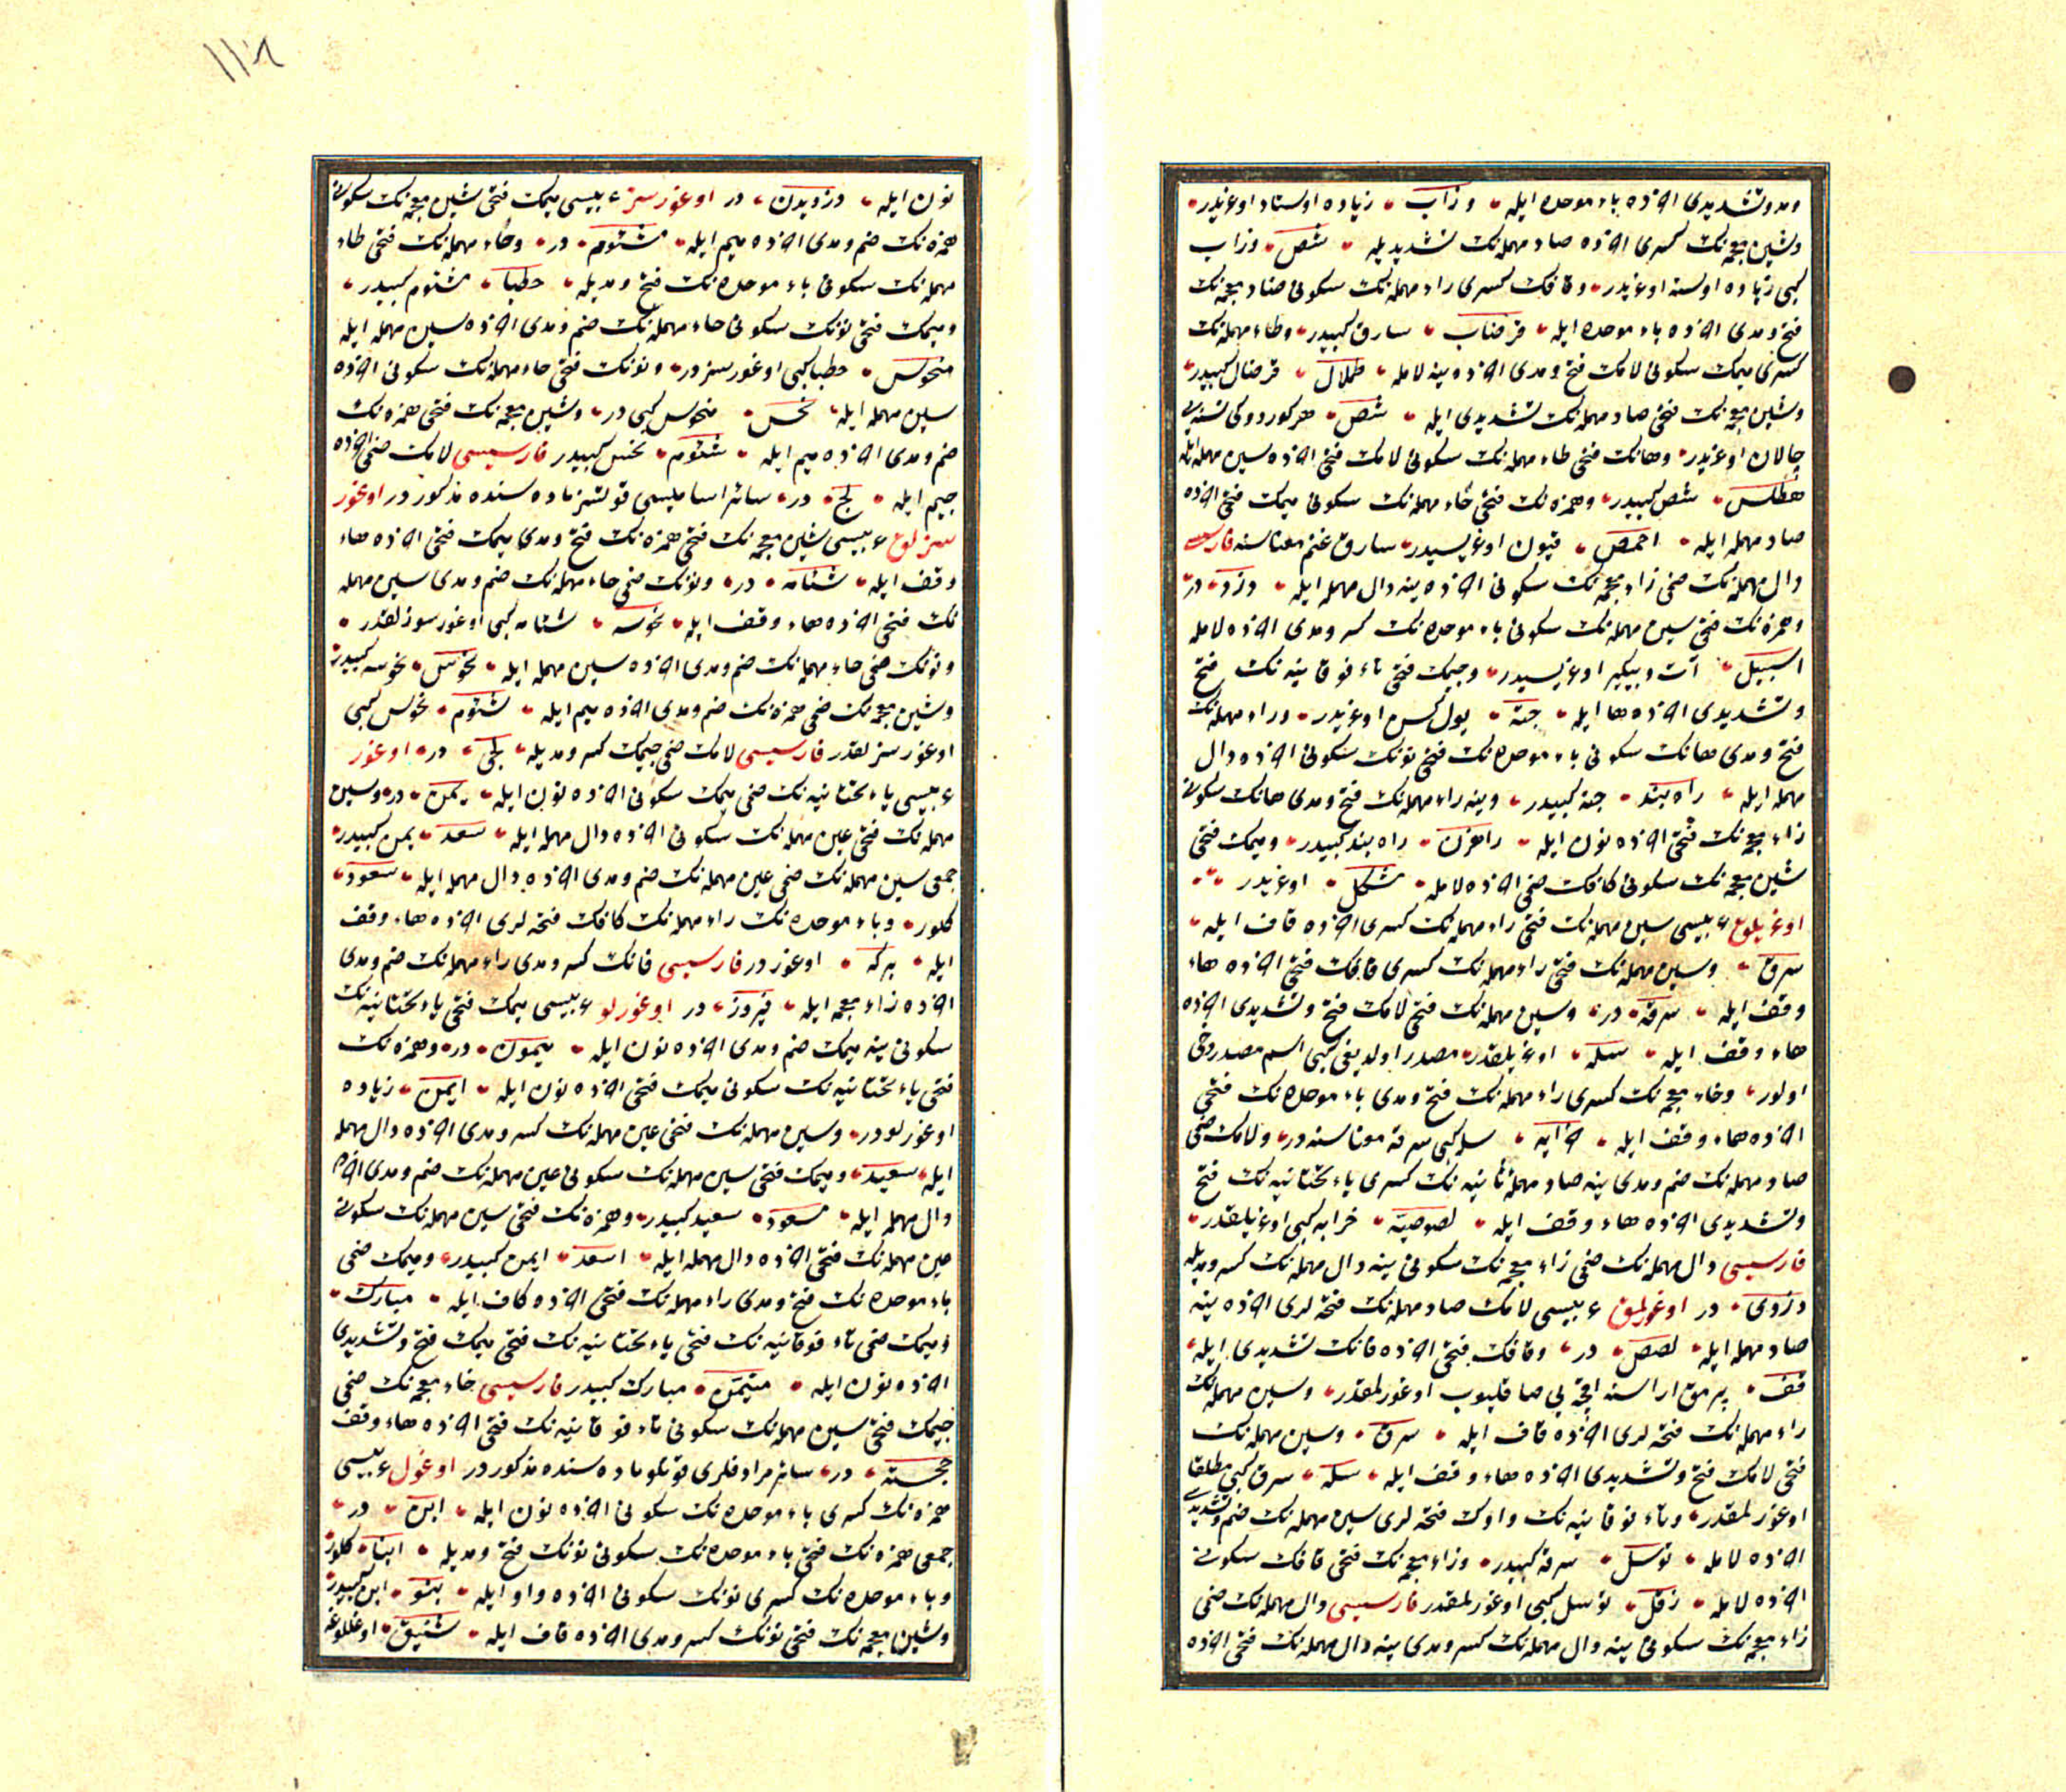 ومد وتشديدى اخرنده باء موحده ايله وزاب زياده اوستاد اوغريدر
وشين معجمه نك كسرى اخرنده صاد مهمله نك تشديديله شص وزاب
كبى زياده اوسته اوغريدر وقافك كسرى راء مهمله نك سكونى ضاد معجمه نك
فتح ومدى اخرنده باء موحده ايله قرضاب سارق كبيدر وطاء مهمله نك
كسرى ميمك سكونى لامك فتح ومدى اخرنده ينه لامله طملال قرضاب كبيدر
وشين معجمه نك فتحى صاد مهمله نك تشديدى ايله شص هر كوردوكى نسنه يى
چالان اوغريدر وهانك فتحى طاء مهمله نك سكونى لامك فتحى اخرنده سين مهمله ايله
هطلس شص كبيدر وهمزه نك فتحى حاء مهمله نك سكونى ميمك فتحى اخرنده
صاد مهمله ايله احمص قيون اوغريسيدر سارق غنم معناسنه فارسيسى
دال مهمله نك ضمى زاء معجمه نك سكونى اخرنده ينه دال مهمله ايله دزد در
وهمزه نك فتحى سين مهمله نك سكونى باء موحده نك كسر ومدى اخرنده لامله
اسبيل آت وبيكير اوغريسيدر وجيمك فتحى تاء فوقانيه نك فتح
وتشديدى اخرنده ها ايله جته يول كسن اوغريدر وراء مهمله نك
فتح ومدى هانك سكونى باء موحده نك فتحى نونك سكونى اخرنده دال
مهمله ايله راه بند جته كبيدر وينه راء مهمله نك فتح ومدى هانك سكونى
زاء معجمه نك فتحى اخرنده نون ايله راهزن راه بند كبيدر وميمك فتحى
شين معجمه نك سكونى كافك ضمى اخرنده لامله مشكل اوغريدر
اوغريلق عربيسى سين مهمله نك فتحى راء مهمله نك كسرى اخرنده قاف ايله
سرق وسين مهمله نك فتحى راء مهمله نك كسرى قافك فتحى اخرنده هاء
وقف ايله سرقه در وسين مهمله نك فتحى لامك فتح وتشديدى اخرنده
هاء وقف ايله سله اوغريلقدر مصدر اولديغى كبى اسم مصدر دخى
اولور وخاء معجمه نك كسرى راء مهمله نك فتح ومدى باء موحده نك فتحى
اخرنده هاء وقف ايله خرابه سله كبى سرقه معناسنه در ولامك ضمى
صاد مهمله نك ضم ومدى ينه صاد مهمله ثانيه نك كسرى ياء تحتانيه نك فتح
وتشديدى اخرنده هاء وقف ايله لصوصيه خرابه كبى اوغريلقدر
فارسيسى دال مهمله نك ضمى زاء معجمه نك سكونى ينه دال مهمله نك كسر ومديله
دزدى در اوغورلمق عربيسى لامك صاد مهمله نك فتحه لرى اخرنده ينه
صاد مهمله ايله لصص در وقافك فتحى اخرنده فانك تشديدى ايله
قف پرمق اراسنه اقچه يى صاقليوب اوغورلمقدر وسين مهمله نك
راء مهمله نك فتحه لرى اخرنده قاف ايله سرق وسين مهمله نك
فتحى لامك فتح وتشديدى اخرنده هاء وقف ايله سله سرق كبى مطلقا
اوغورلمقدر وتاء فوقانيه نك واوك فتحه لرى سين مهمله نك ضم وتشديدى
اخرنده لامله توسل سرقه كبيدر وزاء معجمه نك فتحى قافك سكونى
اخرنده لامله زقل توسل كبى اوغورلمقدر فارسيسى دال مهمله نك ضمى
زاء معجمه نك سكونى ينه دال مهمله نك كسر ومدى ينه دال مهمله نك فتحى اخرنده
نون ايله دزديدن در اوغورسز عربيسى ميمك فتحى شين معجمه نك سكونى
همزه نك ضم ومدى اخرنده ميم ايله مشئوم در وحاء مهمله نك فتحى طاء
مهمله نك سكونى باء موحده نك فتح ومديله حطبا مشئوم كبيدر
وميمك فتحى نونك سكونى حاء مهمله نك ضم ومدى اخرنده سين مهمله ايله
منحوس حطبا كبى اوغورسزدر ونونك فتحى حاء مهمله نك سكونى اخرنده
سين مهمله ايله نحس منحوس كبى در وشين معجمه نك فتحى همزه نك
ضم ومدى اخرنده ميم ايله شئوم نحس كبيدر فارسيسى لامك ضمى اخرنده
جيم ايله لج در سائر اساميسى قوتسز ماده سنده مذكوردر اوغور
سزلق عربيسى شين معجمه نك فتحى همزه نك فتح ومدى ميمك فتحى اخرنده هاء
وقف ايله شئامه در ونونك ضمى حاء مهمله نك ضم ومدى سين مهمله
نك فتحى اخرنده هاء وقف ايله نحوسه شئامه كبى اوغورسزلقدر
ونونك ضمى حاء مهمله نك ضم ومدى اخرنده سين مهمله ايله نحوس نحوسه كبيدر
وشين معجمه نك ضمى همزه نك ضم ومدى اخرنده ميم ايله شئوم نحوس كبى
اوغورسزلقدر فارسيسى لامك ضمى جيمك كسر ومديله لجى در اوغور
عربيسى ياء تحتانيه نك ضمى ميمك سكونى اخرنده نون ايله يمن در وسين
مهمله نك فتحى عين مهمله نك سكونى اخرنده دال مهمله ايله سعد يمن كبيدر
جمعى سين مهمله نك ضمى عين مهمله نك ضم ومدى اخرنده دال مهمله ايله سعود
كلور وباء موحده نك راء مهمله نك كافك فتحه لرى اخرنده هاء وقف
ايله بركه اوغوردر فارسيسى فانك كسر ومدى راء مهمله نك ضم ومدى
اخرنده زاء معجمه ايله فيروز در اوغورلو عربيسى ميمك فتحى ياء تحتانيه نك
سكونى ينه ميمك ضم ومدى اخرنده نون ايله ميمون در وهمزه نك
فتحى ياء تحتانيه نك سكونى ميمك فتحى اخرنده نون ايله ايمن زياده
اوغورلودر وسين مهمله نك فتحى عين مهمله نك كسر ومدى اخرنده دال مهمله
ايله سعيد وميمك فتحى سين مهمله نك سكونى عين مهمله نك ضم ومدى اخرنده
دال مهمله ايله مسعود سعيد كبيدر وهمزه نك فتحى سين مهمله نك سكونى
عين مهمله نك فتحى اخرنده دال مهمله ايله اسعد ايمن كبيدر وميمك ضمى
باء موحده نك فتح ومدى راء مهمله نك فتحى اخرنده كاف ايله مبارك
وميمك ضمى تاء فوقانيه نك فتحى ياء تحتانيه نك فتحى ميمك فتح وتشديدى
اخرنده نون ايله متيمن مبارك كبيدر فارسيسى خاء معجمه نك ضمى
جيمك فتحى سين مهمله نك سكونى تاء فوقانيه نك فتحى اخرنده هاء وقف
خجسته در سائر مرادفلرى قوتلو ماده سنده مذكوردر اوغول عربيسى
همزه نك كسرى باء موحده نك سكونى اخرنده نون ايله ابن در
جمعى همزه نك فتحى باء موحده نك سكونى نونك فتح ومديله ابنا كلور
وباء موحده نك كسرى نونك سكونى اخرنده واو ايله بنو ابن كبيدر
وشين معجمه نك فتحى نونك كسر ومدى اخرنده قاف ايله شنيق اوغللوغه